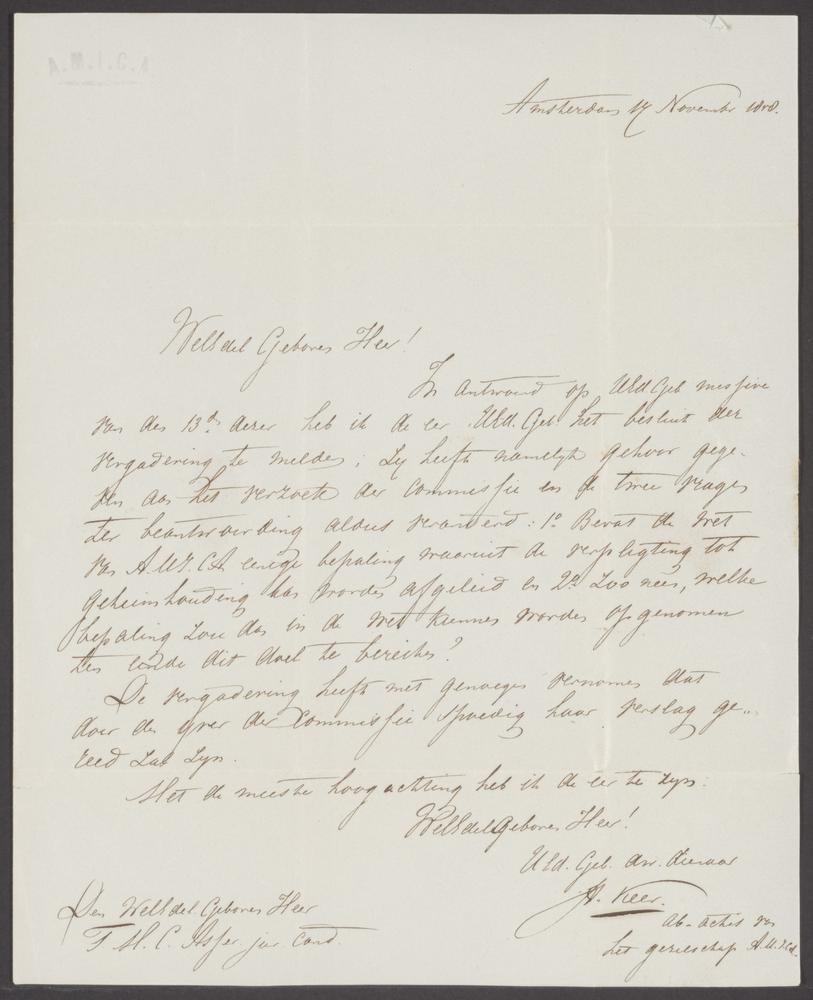 A.M.I.C.A
Amsterdam 17 November
WelEdel Geboren Heer!
In antwoord op UEd.Geb. missive
van den 13den dezer heb ik de eer UEd. Geb. het besluit der
vergadering te melden; Zij heeft namelijk gehoor gege-
ven aan het verzoek der Commissie en de twee vragen
ter beantwoording aldus veranderd: 1o. Bevat de Wet
van A.M.I.C.A eenige bepaling waaruit de verpligting tot
geheimhouding kan worden afgeleid en 2o. Zoo neen, welke
bepaling zou dan in de Wet kunnen worden opgenomen
ten einde dit doel te bereiken?
De vergadering heeft met genoegen vernomen dat
door den yver der Commissie spoedig haar verslag ge-
reed zal zyn.
Met de meeste hoogachting heb ik de eer te zyn:
WelEdelgeboren Heer!
UEd. Geb. dw. dienaar
ab-actis van
het gezelschap A.M.I.C.A.
Den WelEdel Geboren Heer
T. M. C. Asser jur. cand.